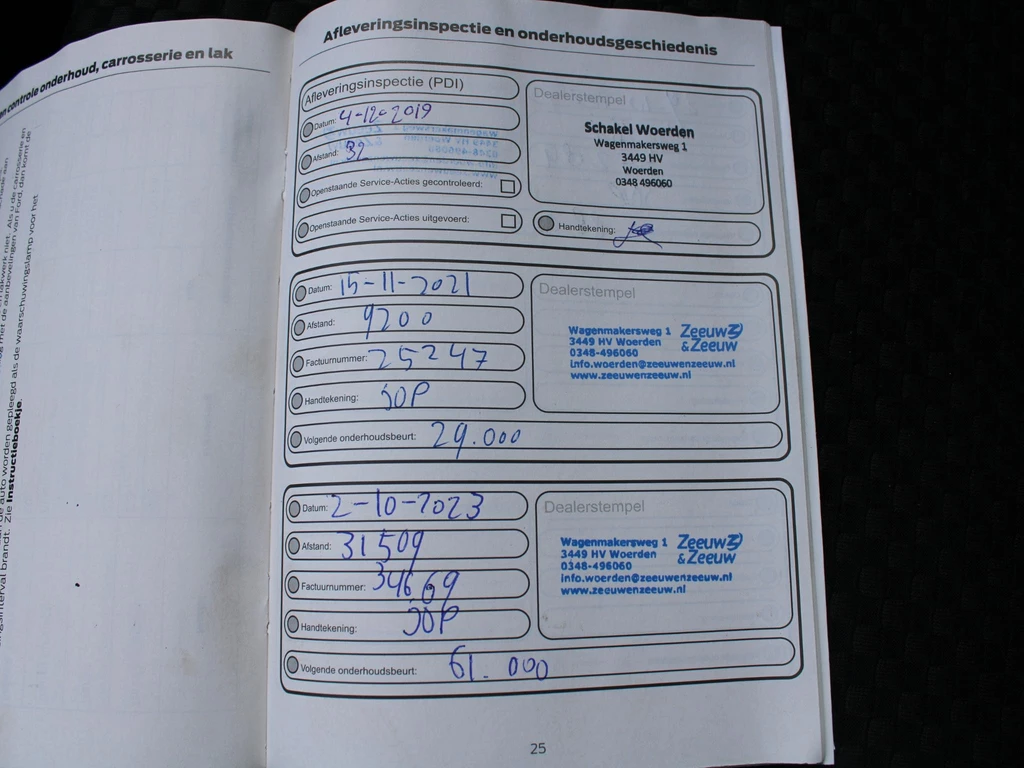 en controle onderhoud, carrosserie en lak
de auto worden gepleegd als de waarschuwingslamp voor het
brandt. Zie Instructieboekje.
Afleveringsinspectie en onderhoudsgeschiedenis
Afleveringsinspectie (PDI)
Datum: 4-12-2019
Afstand: 32
Openstaande Service-Acties gecontroleerd:
Openstaande Service-Acties uitgevoerd:
Dealerstempel
Schakel Woerden
Wagenmakersweg 1
3449 HV
Woerden
0348 496060
Handtekening:
Datum: 15-11-2021
Afstand: 9200
Factuurnummer: 25247
Handtekening: JOP
Volgende onderhoudsbeurt: 29.000
Dealerstempel
Wagenmakersweg 1
3449 HV Woerden
0348-496060
info.woerden@zeeuwenzeeuw.nl
www.zeeuwenzeeuw.nl
Zeeuw
& Zeeuw
Datum: 2-10-2023
Afstand: 31509
Factuurnummer: 34669
Handtekening: JOP
Volgende onderhoudsbeurt: 61.000
Dealerstempel
Wagenmakersweg 1
3449 HV Woerden
0348-496060
info.woerden@zeeuwenzeeuw.nl
www.zeeuwenzeeuw.nl
Zeeuw
& Zeeuw
25